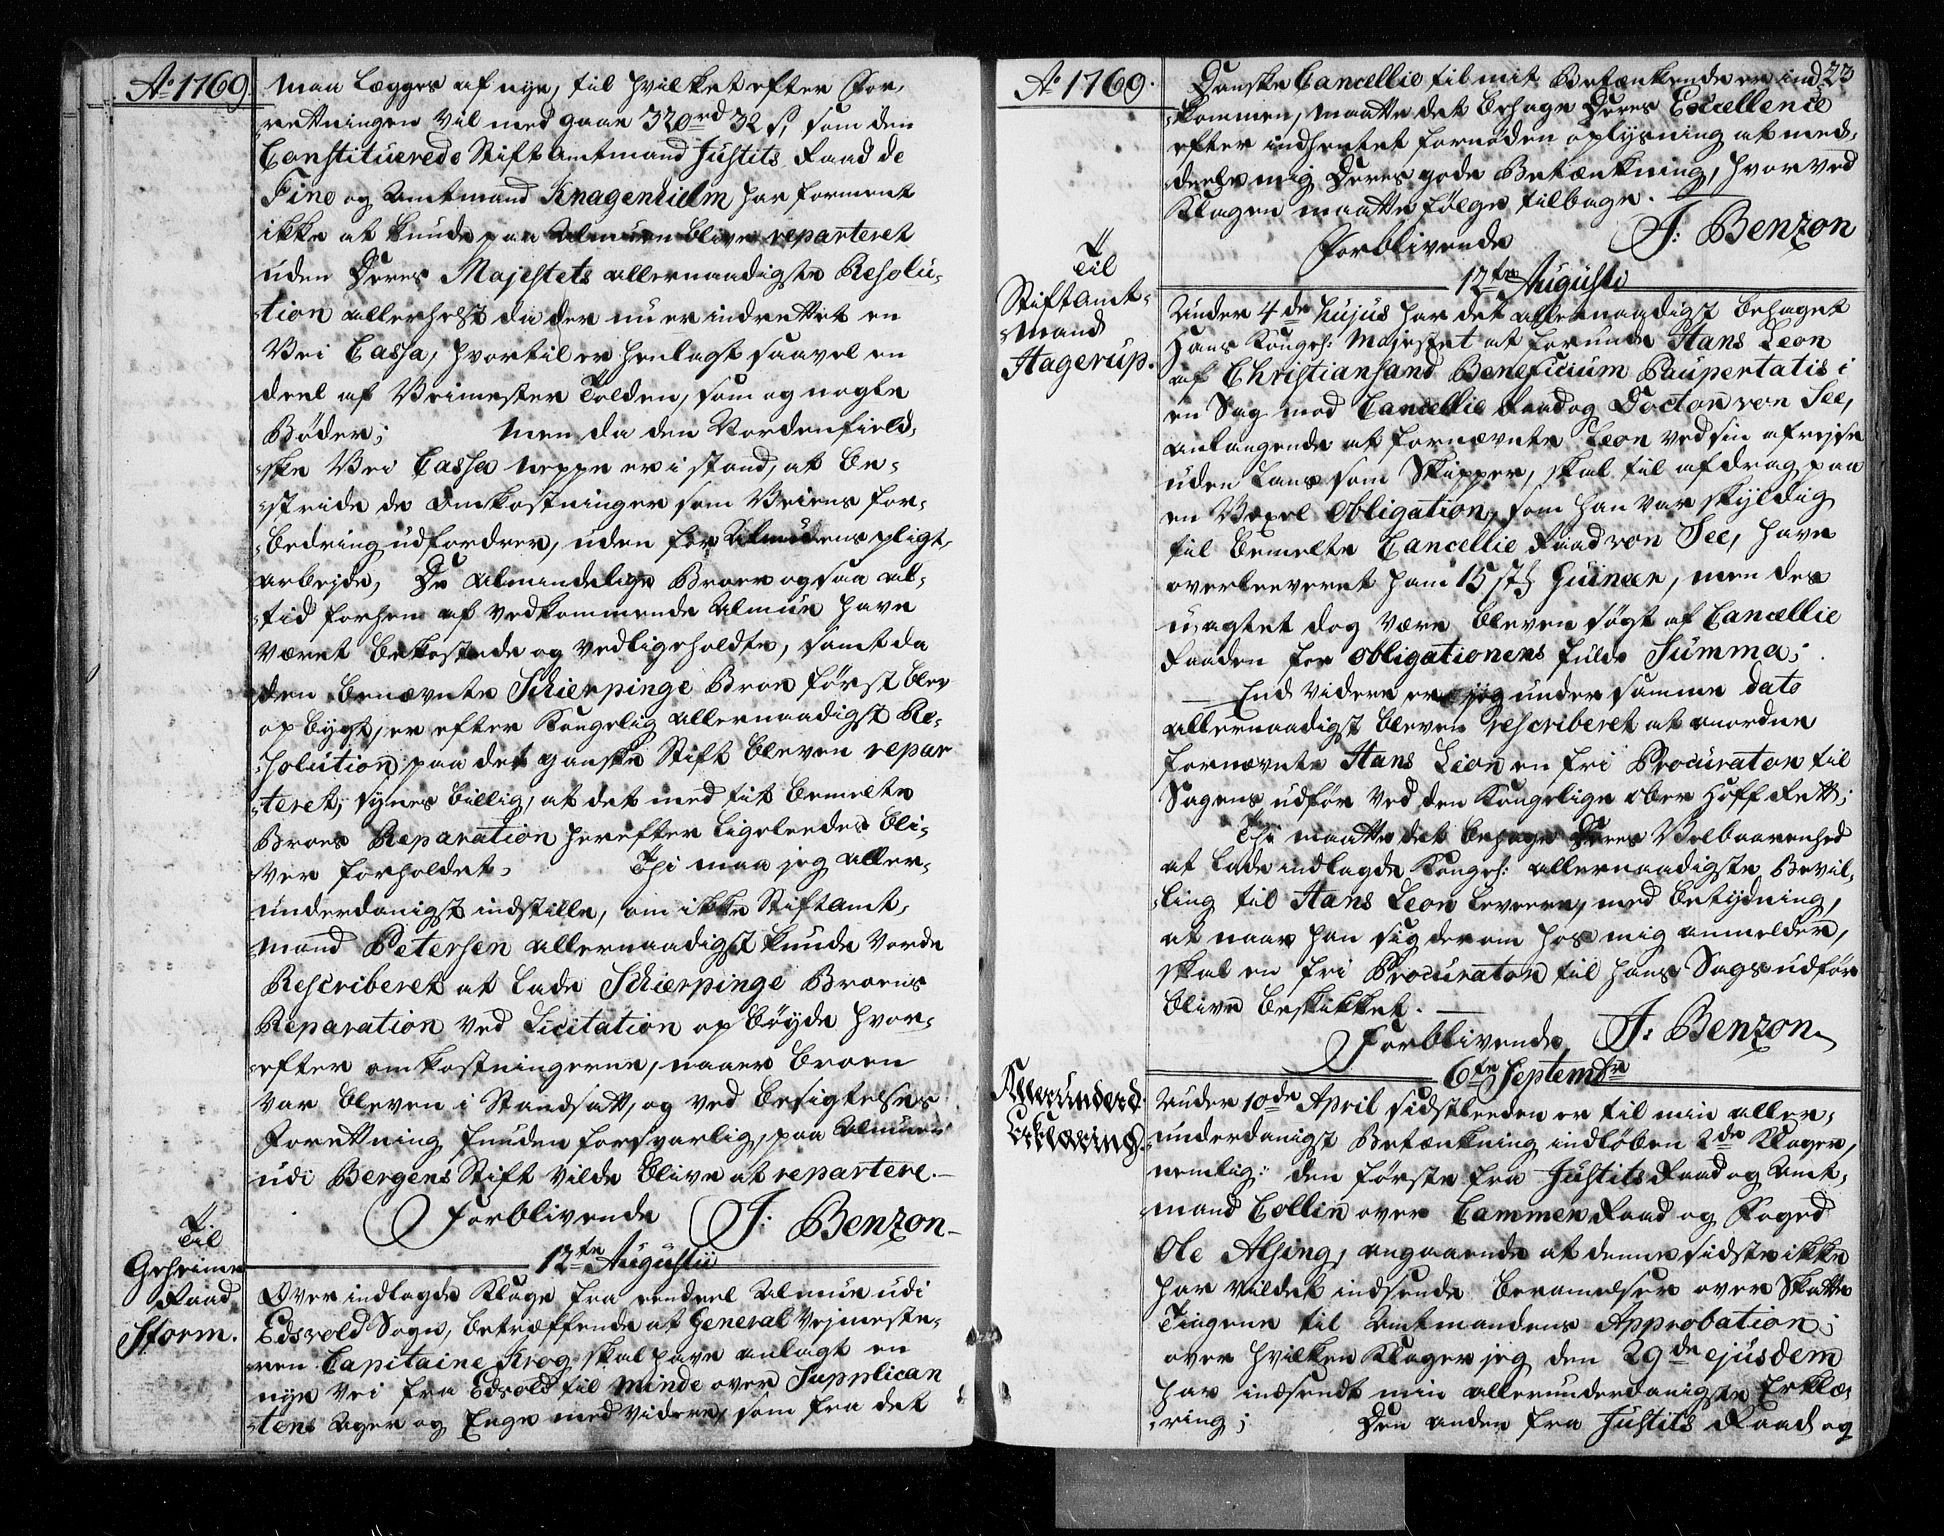 Ao 1769
maa lægges af nye, til hvilket efter For,
rettningen vil med gaae 320rd 32 s, som den
Constituerede Stift Amtmand Justits Raad de
Fine og Amtmand Knagenhielm har forment
ikke at kunde paa Almuen blive reparteret
uden Deres Majestets allernaadigste Resolu-
tion allerhelst da der nu er indrettet en
Vei Cassa, hvortil er henlagt saavel en
deel af Veimester Tolden, som og nogle
Bøder; Men da den Nordenfield-
ske Vei Cassa neppe er i stand, at be-
stride de Omkostninger som Veiens for-
bedring udfordrer, uden for Almuens pligt,
arbejde, De almindelige Broer ogsaa al-
tid forhen af vedkommende Almue have
været bekostede og vedligeholdte, samt da
den benævnte Schierpinge Broe først blev
opbygt, er efter Kongelig allernaadigst Re-
solution, paa det ganske Stift bleven repar
teret, synes billig, at det med tit bemelte
Broes Reparation herefter ligeleedes bli-
ver forholdet, Thi maa jeg aller-
underdanigst indstille, om ikke Stiftamt-
mand Petersen allernaadigst kunde vorde
Rescriberet at lade Schierpinge Broens
Reparation ved Licitation opbøyde hvor-
efter omkostningerne, naaer broen
var bleven i Standsatt, og ved besigtelses
Forettning funden forsvarlig, paa Almuen
udi Bergens Stift vilde blive at repartere.
Forblivende J: Benzon
12te Augustii
Til
Geheime
Raad
Storm.
Over indlagde Klage fra eendeel Almue udi
Edsvold Sogn, betræffende at General Vejmeste-
ren Capitaine Krog skal have anlagt en
nye Vei fra Edsvold til Minde over Supplican
tens Ager og Enge med videre, som fra det
Ao 1769.
23
Danske Cancellie til mit Betænkende er ind
kommen, maatte det behage Deres Excellence
efter indhentet fornøden oplysning at med-
deele mig Deres gode Betænkning, hvorved
Klagen maatte følge tilbage.
Forblivende J: Benzon
12te Augusti
Til
Stiftamt-
mand
Hagerup.
Under 4de hujus har det allernaadigst behaget
Hans Kongel: Majestet at forunde Hans Leon
af Christiansand Beneficium Paupertatis i
en Sag mod Cancellie Raad og Doctor von See,
anlangende at fornævnte Leon ved sin afrejse
uden Lans som Skipper, skal til afdrag paa
en Vexel Obligation, som han var skyldig
til bemelte Cancellie Raad von See, have
overleeveret ham 15 st. Guineer, men des
uagtet dog være bleven søgt af Cancellie
Raaden for obligationens fulde Summa;
End videre er jeg under samme dato
allernaadigst bleven rescriberet at anordne
fornævnte Hans Leon en fri Procurator til
Sagens udføre ved den Kongelige Ober Hoff Rett;
Thi maatte det behage Deres Velbaarenhed
at lade indlagde Kongel: allernaadigste Bevil-
ling til Hans Leon levere, med betydning,
at naar han sig derom hos mig anmelder,
skal en fri Procurator til hans Sags udføre
blive beskikket.
Forblivende J: Benzon
6te Septembre
Allerunderd.
Erklæring.
Under 10de April sidstleeden er til min aller-
underdanigst Betænkning indløben 2de Klager,
nemlig: den første fra Justits Raad og Amt-
mand Collin over Cammer Raad og Foged
Ole Alsing, angaaende at denne sidste ikke
har vildet indsende berammelser over Skatte
Tingene til Amtmandens Approbation;
over hvilken Klage jeg den 29de ejusdem
har indsendt min allerunderdanigste Erklæ-
ring; Den anden fra Justits Raad og